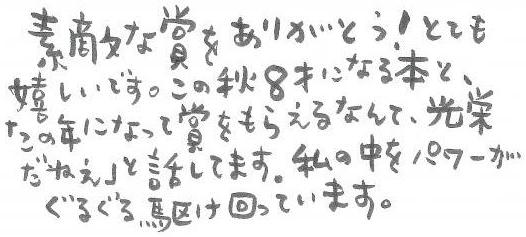 素敵な賞をありがとう！とても
嬉しいです。この秋8才になる本と、
「この年になって賞をもらえるなんて、光栄
だねえ」と話してます。私の中をパワーが
ぐるぐる駆け回っています。